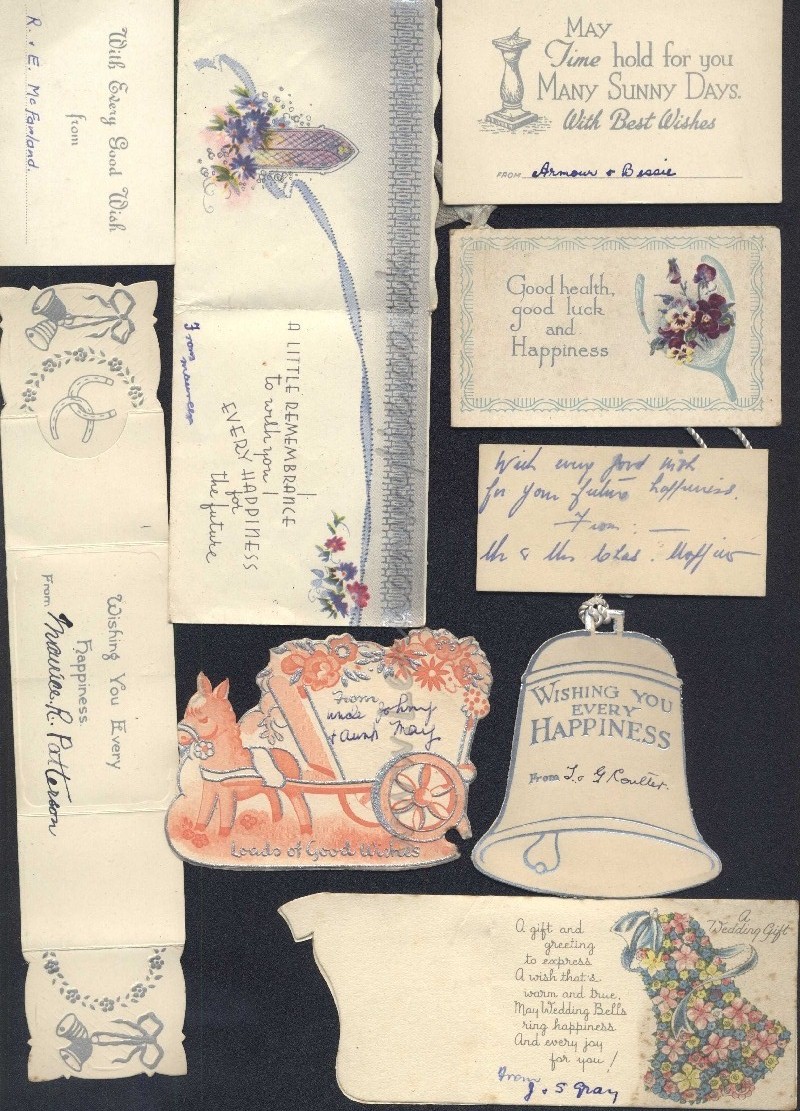 With Every Good Wish
from
R. & E. McFarland.
A LITTLE REMEMBRANCE
to wish you
EVERY HAPPINESS
for
the future
From
MAY
Time hold for you
MANY SUNNY DAYS.
With Best Wishes
FROM Armour & Bessie
Good health,
good luck
and
Happiness
With every good wish
for your future happiness.
From : —
Mr & Mrs Chas.
Wishing You Every
Happiness
From Maurice. R. Patterson
From
uncle Johny
& Aunt May
Loads of Good Wishes
WISHING YOU
EVERY
HAPPINESS
From J. & G Coulter.
A gift and
greeting
to express
A wish that's
warm and true,
May Wedding Bells
ring happiness
And every joy
for you!
From
J. & S Gray
A
Wedding Gift